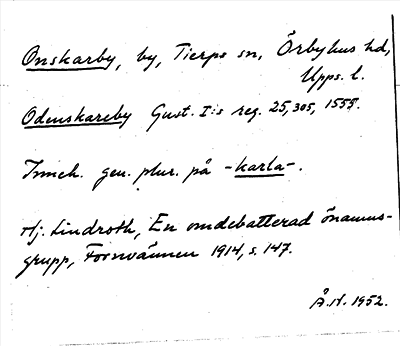 Onskarby, by, Tierps sn, Örbyhus hd,
Upps. l.
Odenskareby Gust. I:s reg. 25, 305, 1555.
Inneh. gen. plur. på -karla-.
Hj. Lindroth, En omdebatterad önamns-
grupp, Fornvännen 1914, s. 147.
Å.H. 1952.